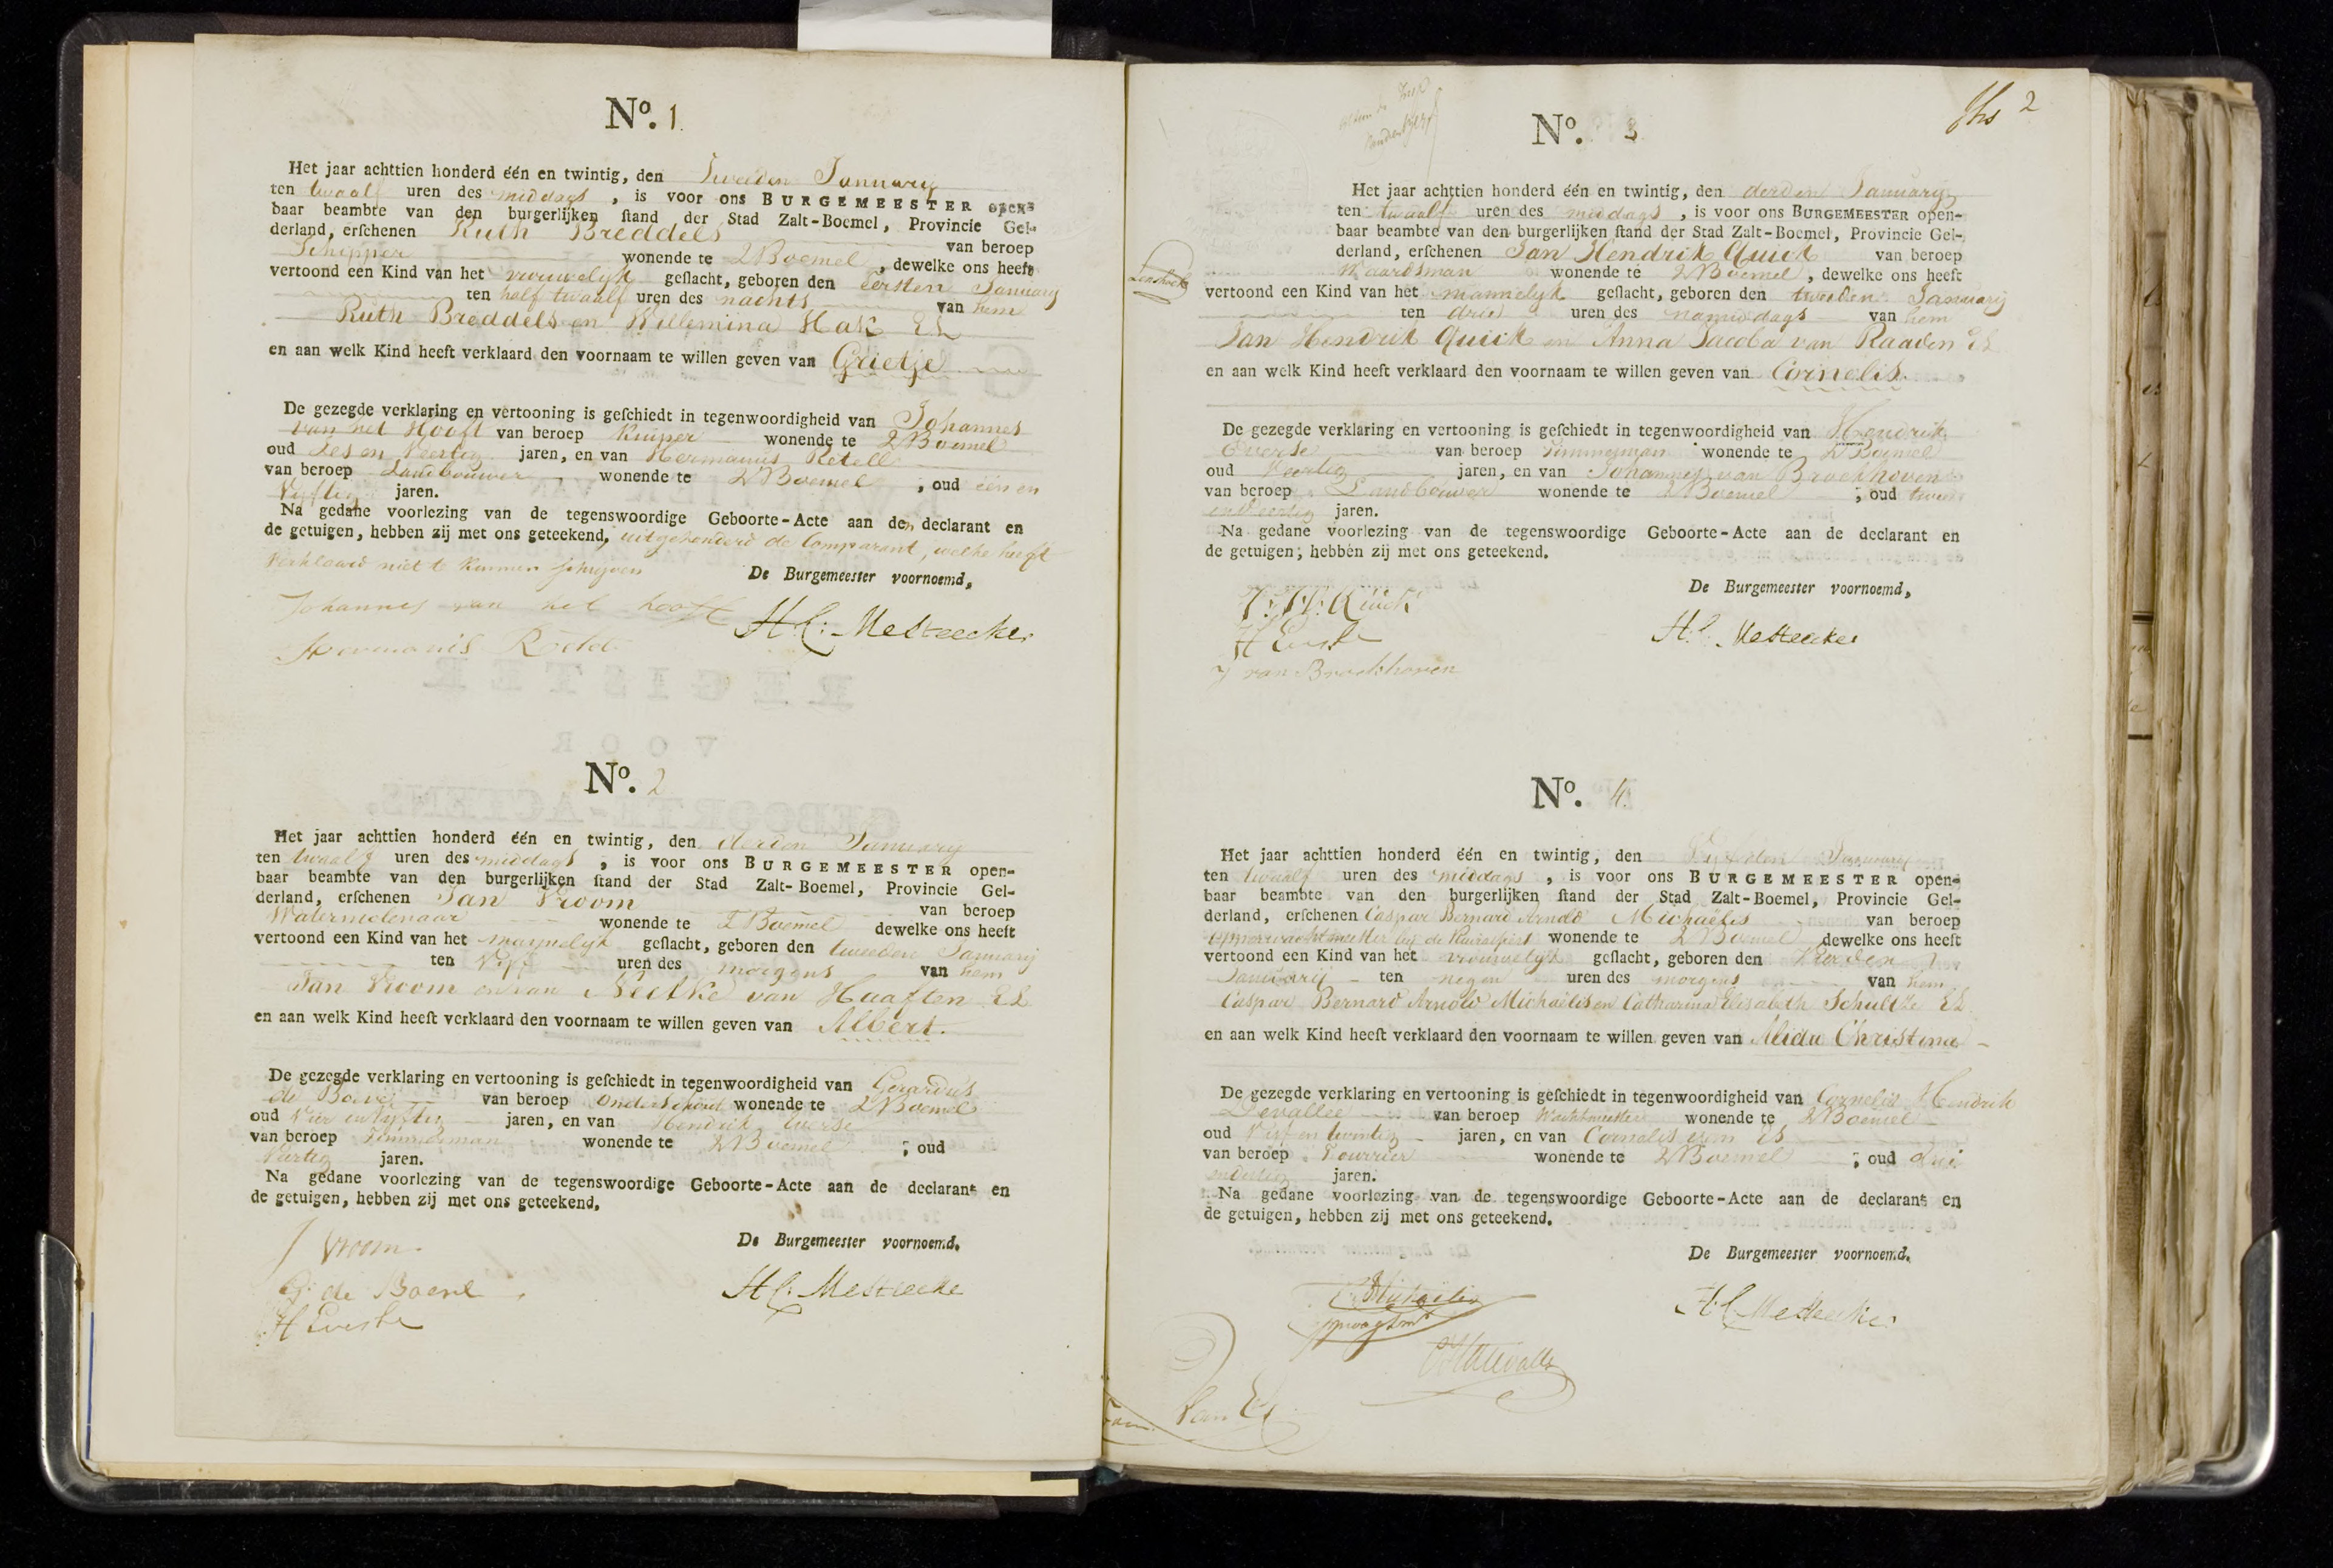 No. 1.
Het jaar achttien honderd één en twintig, den Tweeden January
ten twaalf uren des middags, is voor ons BURGEMEESTER open-
baar beambte van den burgerlijken stand der Stad Zalt-Boemel, Provincie Gel-
derland, erschenen Ruth Breddels van beroep
Schipper wonende te ZBoemel, dewelke ons heeft
vertoond een Kind van het vrouwelyk geslacht, geboren den Eersten January
ten half twaalf uren des nachts van hem
Ruth Breddels en Willemina Hak EL
en aan welk Kind heeft verklaard den voornaam te willen geven van Grietje
De gezegde verklaring en vertooning is geschiedt in tegenwoordigheid van Johannes
van het Hooft van beroep Kuiper wonende te ZBoemel
oud Zes en Veertig jaren, en van Hermanus Retell
van beroep Landbouwer wonende te ZBoemel, oud één en
Vyftig jaren.
Na gedane voorlezing van de tegenswoordige Geboorte-Acte aan den declarant en
de getuigen, hebben zij met ons geteekend, uitgezonderd de Comparant, welke heeft
verklaard niet te kunnen schryven
De Burgemeester voornoemd,
Johannes van het hooft
H.C: Mesteecker
No. 2
Het jaar achttien honderd één en twintig, den derden January
ten twaalf uren des middags, is voor ons BURGEMEESTER open-
baar beambte van den burgerlijken stand der Stad Zalt-Boemel, Provincie Gel-
derland, erschenen Jan Vroom van beroep
Watermolenaar wonende te ZBoemel dewelke ons heeft
vertoond een Kind van het mannelyk geslacht, geboren den tweeden January
ten Vyf uren des morgens van hem
Jan Vroom en van Neeltke van Haaften EL
en aan welk Kind heeft verklaard den voornaam te willen geven van Albert.
De gezegde verklaring en vertooning is geschiedt in tegenwoordigheid van Gerardus
de van beroep wonende te ZBoemel
oud Vier en Vyftig jaren, en van Hendrik Everse
van beroep Timmerman wonende te ZBoemel; oud
Veertig jaren.
Na gedane voorlezing van de tegenswoordige Geboorte-Acte aan de declarant en
de getuigen, hebben zij met ons geteekend.
De Burgemeester voornoemd,
J Vroom.
H.C: Mesteecker
G: de
H Everse
2
No. 3
Het jaar achttien honderd één en twintig, den derden January
ten twaalf uren des middags, is voor ons BURGEMEESTER open-
baar beambte van den burgerlijken stand der Stad Zalt-Boemel, Provincie Gel-
derland, erschenen Jan Hendrik Quick van beroep
Waardsman wonende te ZBoemel, dewelke ons heeft
vertoond een Kind van het mannelyk geslacht, geboren den tweeden January
ten drie uren des namiddags van hem
Jan Hendrik Quick en Anna Jacoba van Raaden EL
en aan welk Kind heeft verklaard den voornaam te willen geven van Cornelis.
De gezegde verklaring en vertooning is geschiedt in tegenwoordigheid van Hendrik
Everse van beroep Timmerman wonende te ZBoemel
oud Veertig jaren, en van Johannes van Broekhoven
van beroep Landbouwer wonende te ZBoemel; oud twee
en Veertig jaren.
Na gedane voorlezing van de tegenswoordige Geboorte-Acte aan de declarant en
de getuigen; hebben zij met ons geteekend.
De Burgemeester voornoemd,
J: H: Quick
H Everse
H.C. Mesteecker
J van Broekhoven
No. 4.
Het jaar achttien honderd één en twintig, den Vyfden January
ten twaalf uren des middags, is voor ons BURGEMEESTER open-
baar beambte van den burgerlijken stand der Stad Zalt-Boemel, Provincie Gel-
derland, erschenen Caspar Bernard Arnold Michaëlis van beroep
Opperwachtmeester bij de wonende te ZBoemel dewelke ons heeft
vertoond een Kind van het vrouwelyk geslacht, geboren den Vierden
Januarij ten negen uren des morgens van hem
Caspar Bernard Arnold Michaëlis en Catharina Elisabeth Schultze EL
en aan welk Kind heeft verklaard den voornaam te willen geven van Alida Christina
De gezegde verklaring en vertooning is geschiedt in tegenwoordigheid van Cornelis Hendrik
Devallee van beroep Wachtmeester wonende te ZBoemel
oud Vyf en twintig jaren, en van Cornelis van Es
van beroep Fourrier wonende te ZBoemel; oud drie
en jaren.
Na gedane voorlezing van de tegenswoordige Geboorte-Acte aan de declarant en
de getuigen, hebben zij met ons geteekend.
De Burgemeester voornoemd,
Michaëlis
H.C. Mesteecker
Van Es